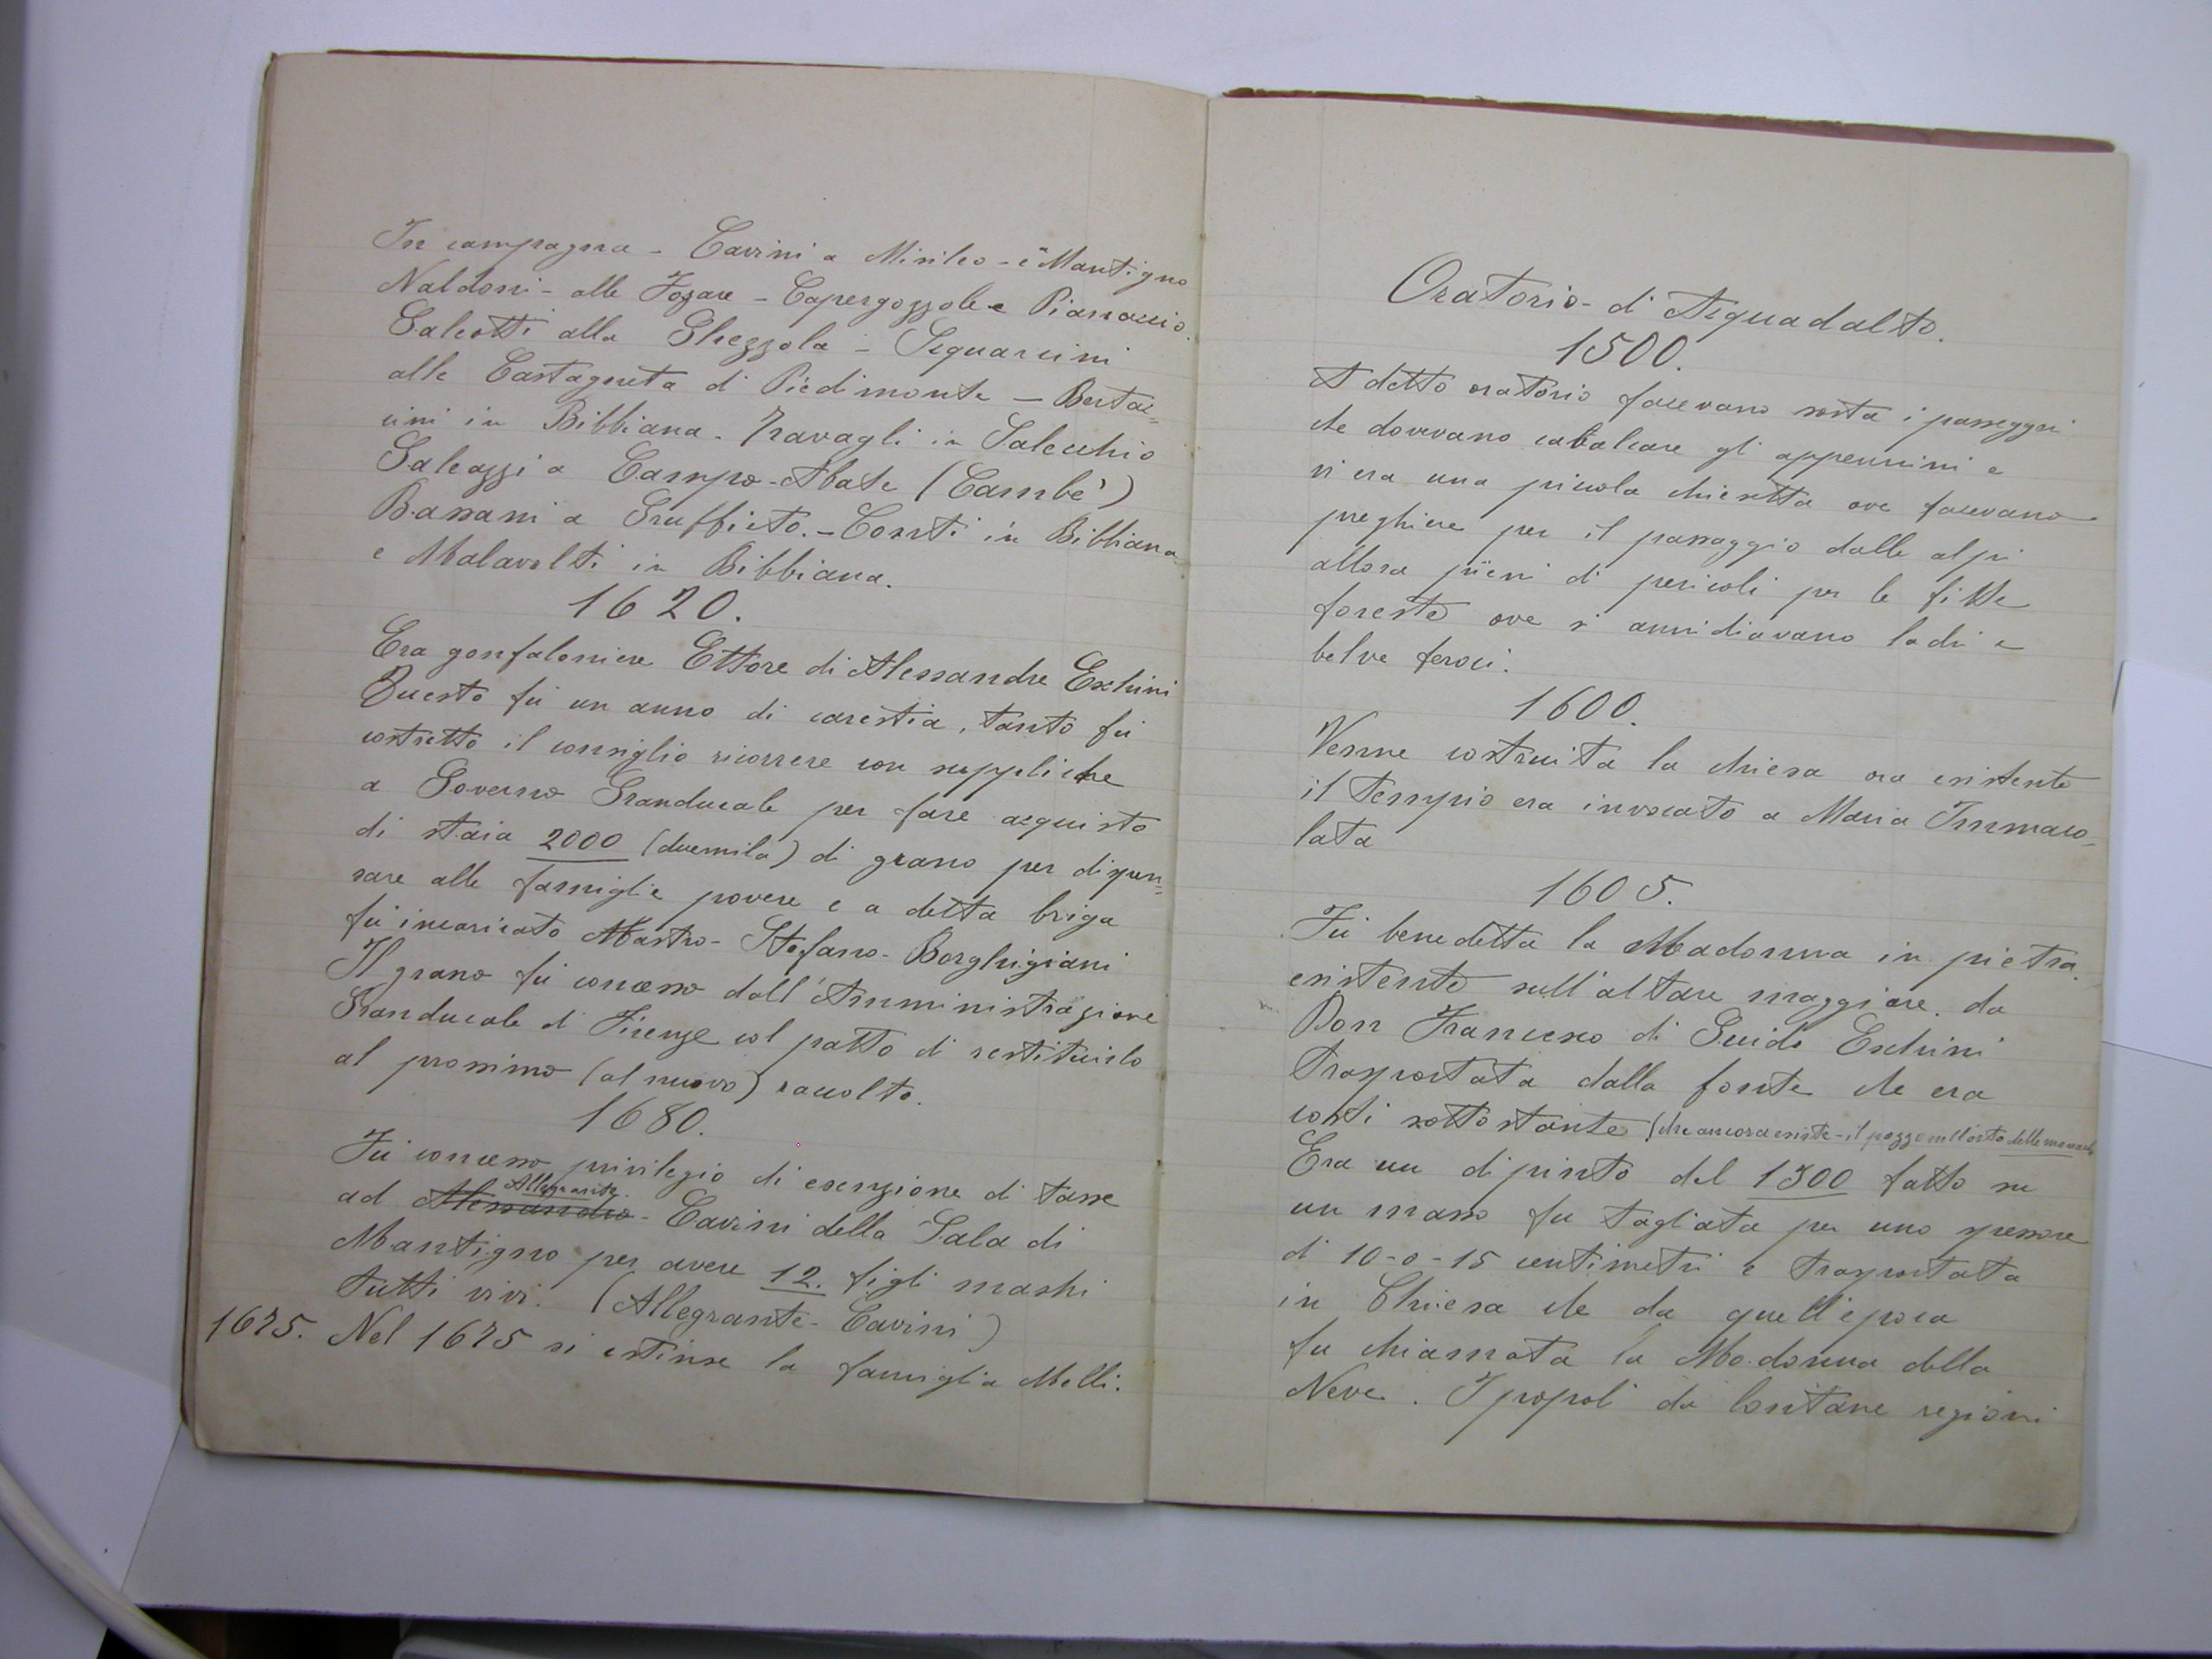 In campagna - Cavini a Mirileo - e Mantigno
Naldoni - alle Fogare - Capergozzole e Pianaccio.
Galeotti alla Ghezzola - Sequarcini
alle Castagneta di Piedimonte - Bertac=
cini in Bibbiana - Travagli in Salecchio
Galeazzi a Campo-Abate (Cambè)
Bassani a Gruffieto. - Conti in Bibbiana
e Malavolti in Bibbiana.
1620.
Era gonfaloniere Ettore di Alessandro Eschini
Questo fù un anno di carestia, tanto fù
costretto il consiglio ricorrere con suppliche
a Governo Granducale per fare acquisto
di staia 2000 (duemila) di grano per dispen=
sare alle famiglie povere e a detta briga
fù incaricato Mastro - Stefano - Borghigiani
Il grano fù concesso dall'Amministrazione
Granducale di Firenze col patto di restituirlo
al prossimo (al nuovo) raccolto.
1680.
Fù concesso privilegio di esenzione di tasse
Allegrante.
ad Alessandro - Cavini della Sala di
Mantigno per avere 12. figli maschi
tutti vivi. (Allegrante - Cavini)
1675. Nel 1675 si estinse la famiglia Melli.
Oratorio - di Acquadalto.
1500.
A detto oratorio facevano sosta i passeggeri
che dovevano cavalcare gli appennini e
vi era una piccola chiesetta ove facevano
preghiere per il passaggio dalle alpi
allora pieni di pericoli per le fitte
foreste ove si annidiavano ladri e
belve feroci.
1600.
Venne costruita la chiesa ora esistente
il Tempio era invocato a Maria Immaco=
lata
1605.
Fù benedetta la Madonna in pietra
esistente sull'altare maggiore. da
Don Francesco di Guido Eschini
Trasportata dalla fonte che era
costì sottostante (che ancora esiste - il pozzo nell'orto delle monache
Era un dipinto del 1300 fatto su
un masso fu tagliata per uno spessore
di 10-o-15 centimetri e trasportata
in Chiesa che da quell'epoca
fu chiamata la Madonna della
Neve. I popoli da lontane regioni